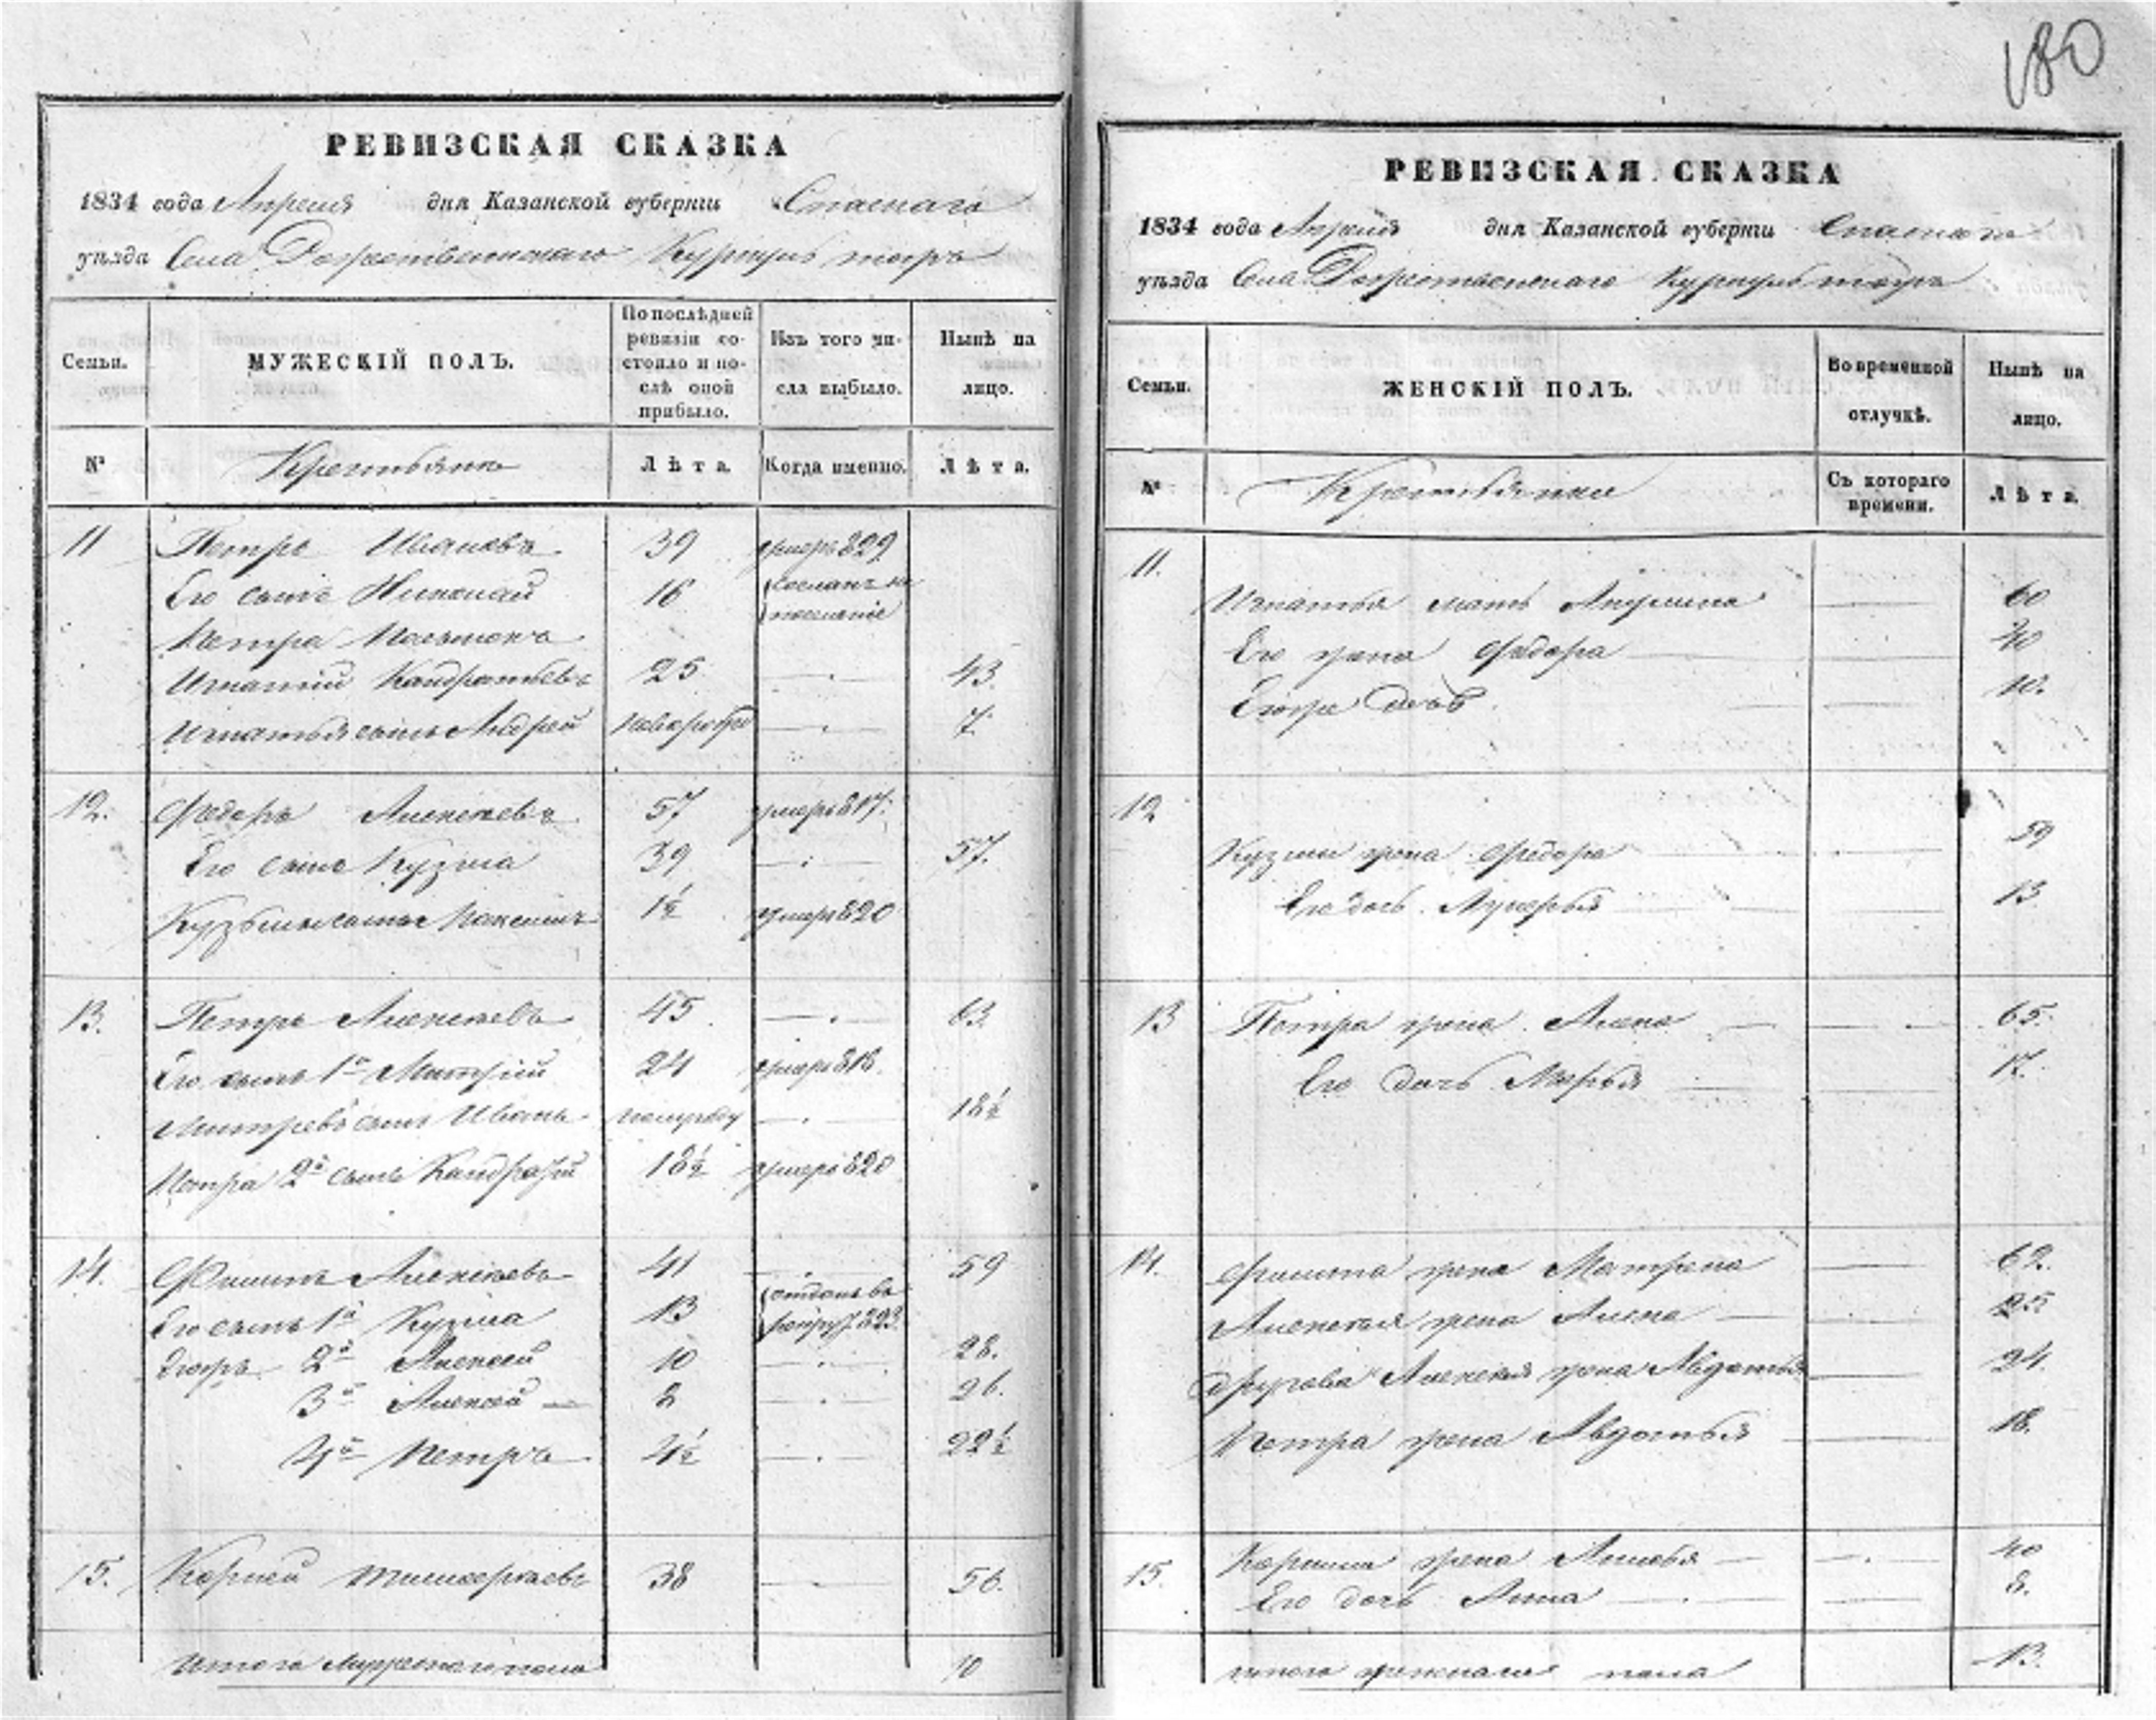 180
РЕВИЗСКАЯ СКАЗКА
1834 года Апреля дня Казанской губернiи Спаскаго
уѣзда Села Рожественскаго Куркуль тожъ
Семьи. МУЖЕСКIЙ ПОЛЪ. По послѣдней ревизiи состояло и послѣ оной прибыло. Изъ того числа выбыло. Нынѣ на лицо.
№ Крестьяне Лѣта. Когда именно. Лѣта.
11 Петръ Ивановъ 39 умеръ 829
Его сынъ Николай 16 сосланъ на поселенiе
Петра
Игнатiй Кандратьевъ 25 — 43.
Игнатья сынъ Андрей — 7.
12. Федоръ Алексеевъ 57 умеръ 817.
Его сынъ Кузма 39 — 57.
Кузьмы сынъ Максимъ 1½ умеръ 820
13. Петръ Алексеевъ 45 — 63.
Его сынъ 1й Митрiй 24 умеръ 818.
Митревъ сынъ Иванъ — 18½
Петра 2й сынъ Кандратiй 18½ умеръ 820
14. Филипъ Алексеевъ 41 — 59
Его сынъ 1й Кузма 13 отданъ въ рекруты 823.
2й Алексей 10 — 28.
3й Алексей — 2 — 26.
4й Петръ 4½ — 22½
15. Корней 38 — 56.
Итого Мужескаго пола 10
РЕВИЗСКАЯ СКАЗКА
1834 года Апреля дня Казанской губернiи Спаскаго
уѣзда Села Рожественскаго Куркуль тожъ
Семьи. ЖЕНСКIЙ ПОЛЪ. Во временной отлучкѣ. Нынѣ на лицо.
№ Крестьянки Съ котораго времени. Лѣта.
11.
Игнатья мать Акулина — 60
Его жена Федора — 40
дочь — 10.
12
Кузмы жена Федора — 59
Его дочь Лукерья — 13
13 Петра жена Алена — 65.
Его дочь Марья — 17.
14. Филипа жена Матрена — 62.
Алексея жена Алена — 25
Другова Алексея жена Авдотья — 24.
Петра жена Авдотья — 18.
15. Корнила жена — 40
Его дочь Анна — 8.
итого женскаго пола 13.